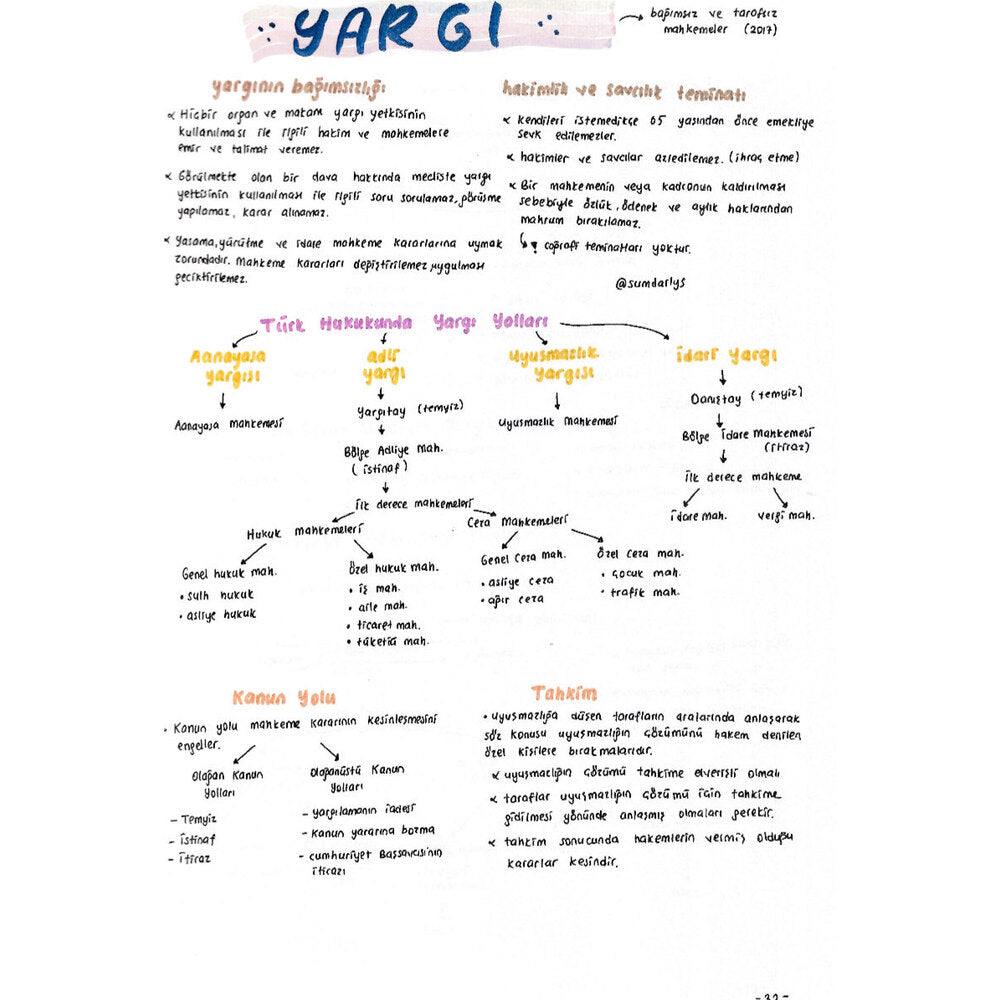 YARGI
bağımsız ve tarafsız
mahkemeler (2017)
yargının bağımsızlığı
∝ Hiçbir organ ve makam yargı yetkisinin
kullanılması ile ilgili hakim ve mahkemelere
emir ve talimat veremez.
∝ Görülmekte olan bir dava hakkında mecliste yargı
yetkisinin kullanılması ile ilgili soru sorulamaz, görüşme
yapılamaz, karar alınamaz.
∝ Yasama, yürütme ve idare mahkeme kararlarına uymak
zorundadır. Mahkeme kararları değiştirilemez, uygulması
geciktirilemez.
hakimlik ve savcılık teminatı
∝ kendileri istemedikçe 65 yaşından önce emekliye
sevk edilemezler.
∝ hakimler ve savcılar azledilemez. (ihraç etme)
∝ Bir mahkemenin veya kadronun kaldırılması
sebebiyle özlük, ödenek ve aylık haklarından
mahrum bırakılamaz.
! coğrafi teminatları yoktur.
@sumdarlys
Türk Hukukunda Yargı Yolları
Aanayasa
yargısı
adli
yargı
Uyuşmazlık
yargısı
idari yargı
Aanayasa mahkemesi
Yargıtay (temyiz)
Bölge Adliye mah.
(istinaf)
ilk derece mahkemeleri
Uyuşmazlık Mahkemesi
Danıştay (temyiz)
Bölge İdare Mahkemesi
(itiraz)
ilk derece mahkeme
idare mah.
vergi mah.
Hukuk mahkemeleri
Ceza Mahkemeleri
Genel hukuk mah.
• sulh hukuk
• asliye hukuk
Özel hukuk mah.
• iş mah.
• aile mah.
• ticaret mah.
• tüketici mah.
Genel ceza mah.
• asliye ceza
• ağır ceza
Özel ceza mah.
• çocuk mah.
• trafik mah.
Kanun Yolu
• Kanun yolu mahkeme kararının kesinleşmesini
engeller.
Olağan Kanun
Yolları
- Temyiz
- istinaf
- itiraz
Olağanüstü Kanun
Yolları
- yargılamanın iadesi
- Kanun yararına bozma
- cumhuriyet Başsavcısının
itirazı
Tahkim
• uyuşmazlığa düşen tarafların aralarında anlaşarak
söz konusu uyuşmazlığın çözümünü hakem denilen
özel kişilere bırakmalarıdır.
∝ uyuşmazlığın çözümü tahkime elverişli olmalı
∝ taraflar uyuşmazlığın çözümü için tahkime
gidilmesi yönünde anlaşmış olmaları gerekir.
∝ tahkim sonucunda hakemlerin vermiş olduğu
kararlar kesindir.